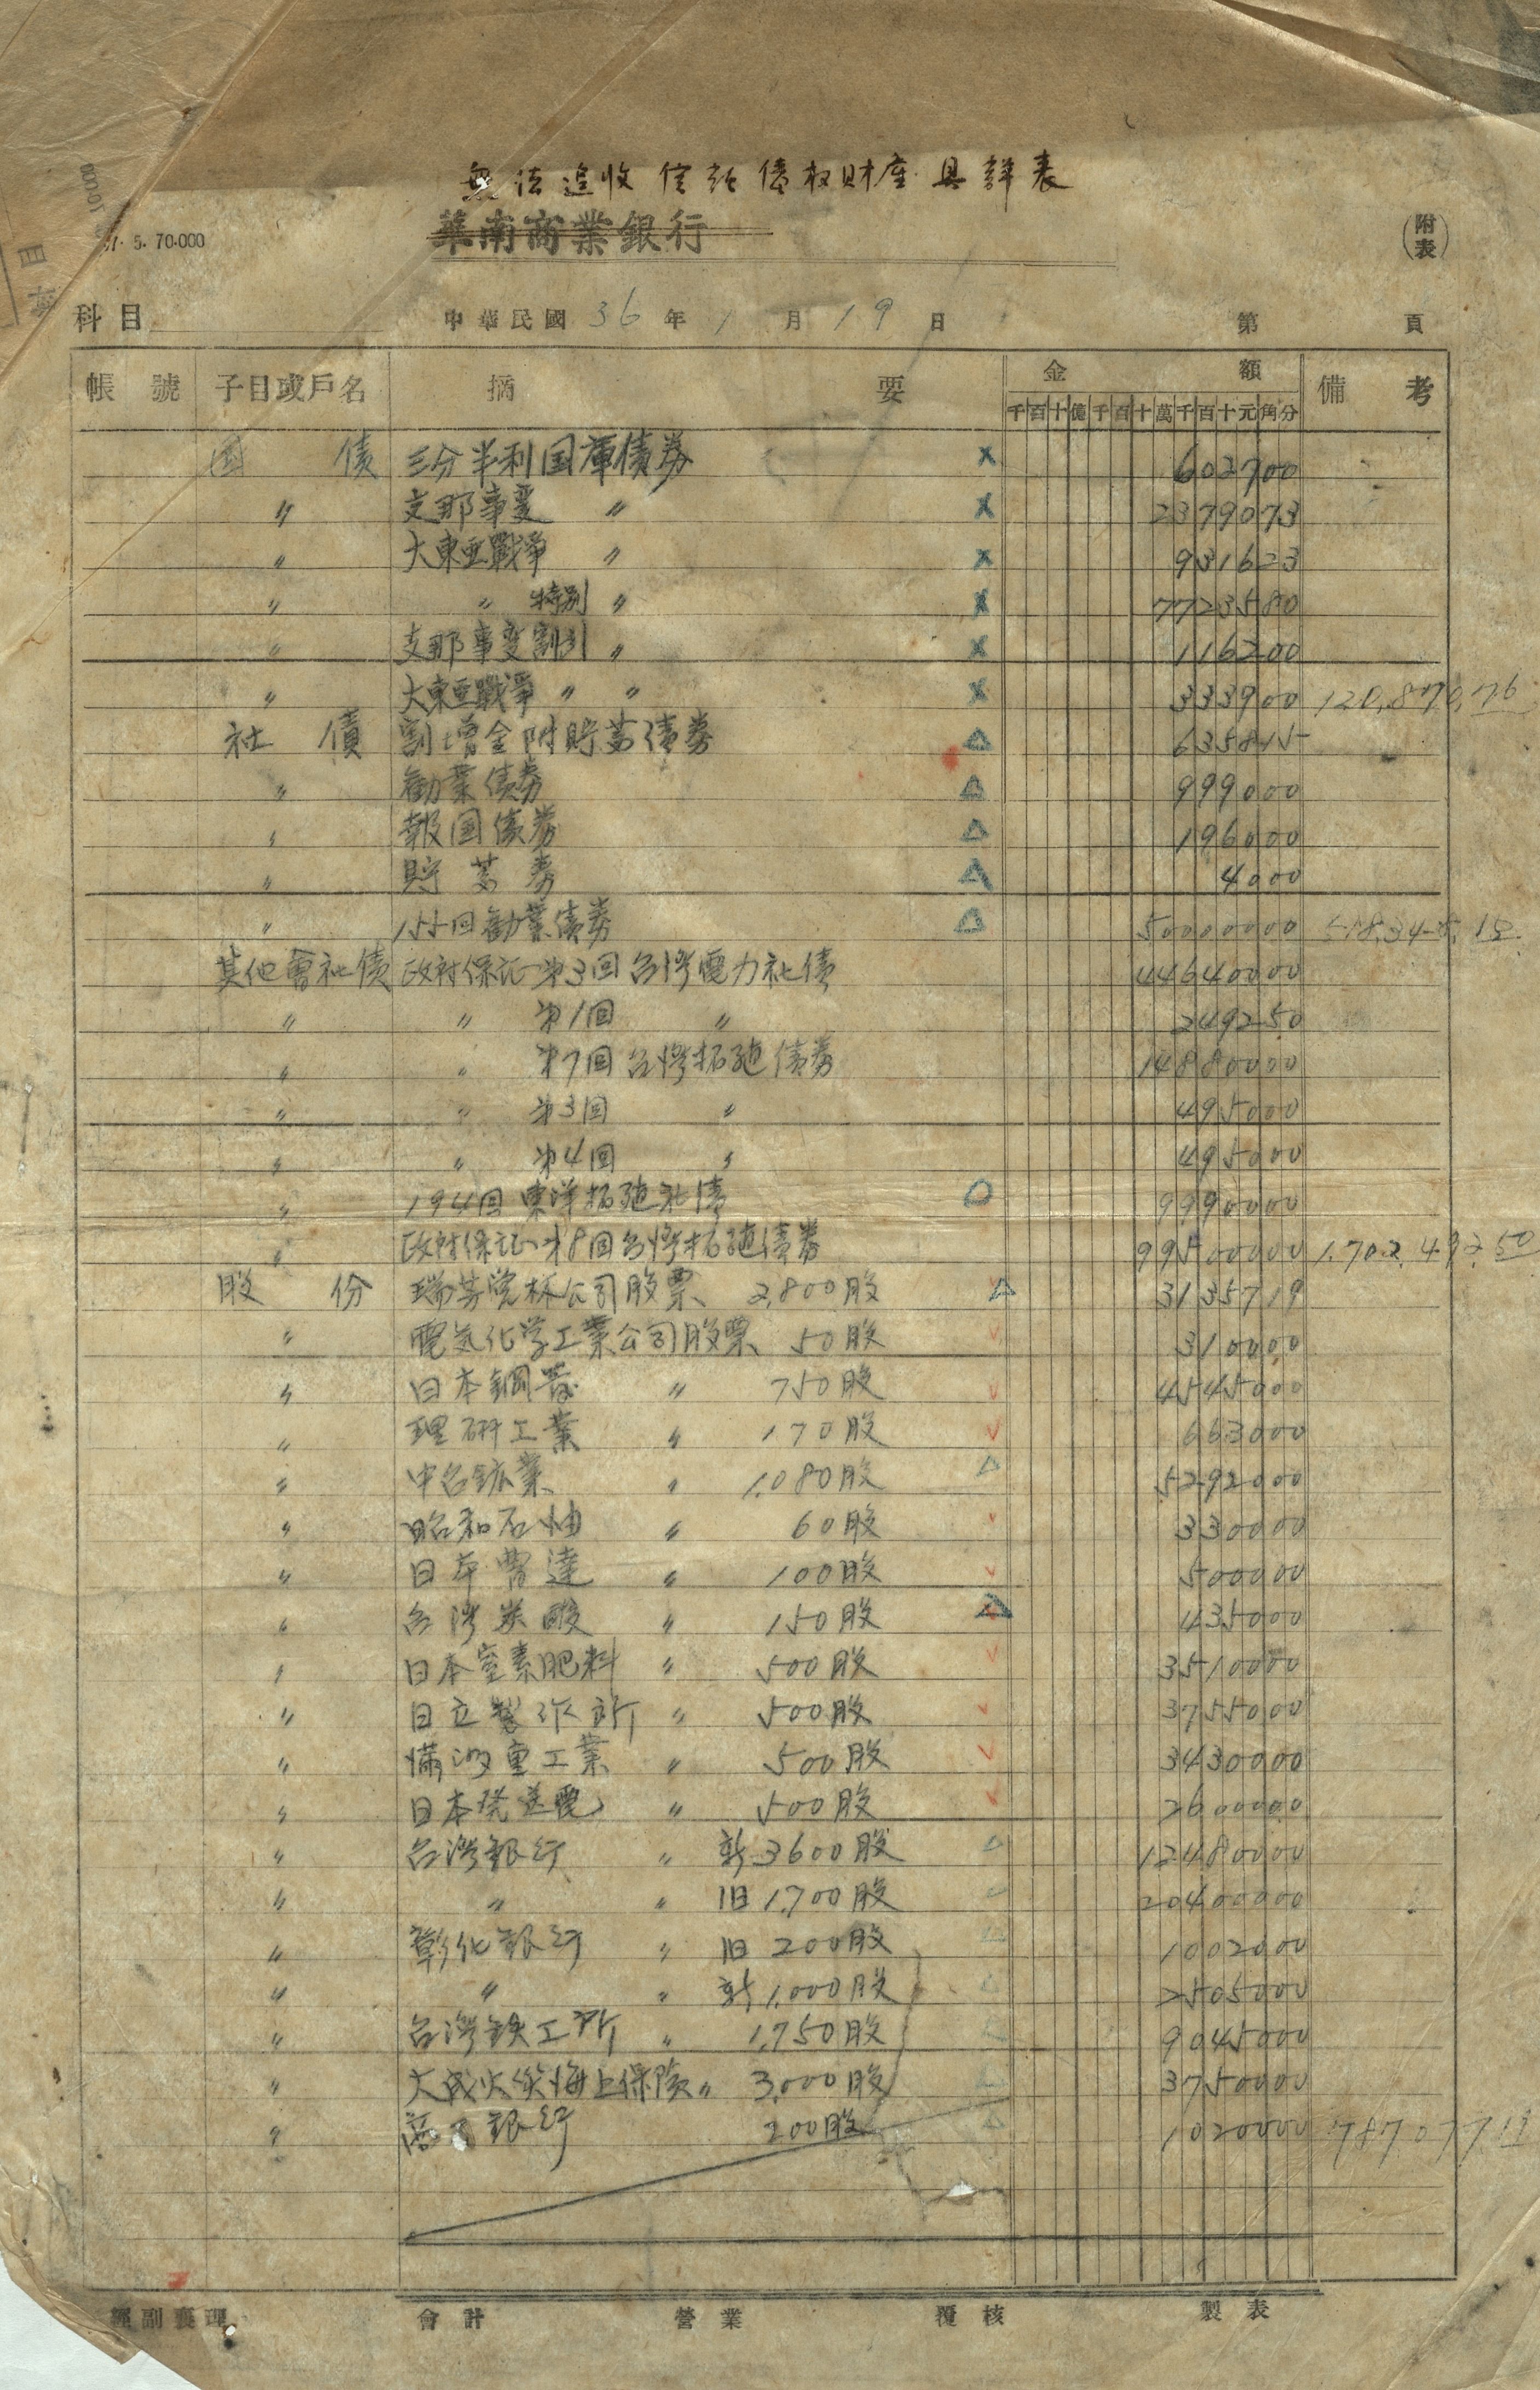 無法追收信託債权財産具詳表
華南商業銀行
5. 70-000
(附表)
科目 中華民國 36 年 1 月 19 日 第 頁
帳號 子目或戶名 摘要 金額 備考
千百十億千百十萬千百十元角分
国債 三分半利国庫債券 × 602700
〃 支那事変 〃 × 2379073
〃 大東亜戰爭 〃 × 931623
〃 〃 特別 〃 × 7723580
〃 支那事変割引 〃 × 116200
〃 大東亜戰爭 〃 〃 × 333900 120,870.76
社債 割增金附貯蓄債券 △ 635815
〃 勧業債券 △ 999000
〃 報国債券 △ 196000
〃 貯蓄券 △ 4000
〃 155回勧業債券 △ 50000000 518,348.15
其他會社債 政府保証第3回台湾電力社債 44640000
〃 〃 第1回 〃 249250
〃 〃 第7回台湾拓殖債券 14880000
〃 〃 第3回 〃 495000
〃 〃 第4回 〃 495000
〃 194回東洋拓殖社債 ○ 9990000
〃 政府保証第8回台湾拓殖債券 99500000 1.702.492.50
股份 瑞芳 公司股票 2,800股 △ 3135719
〃 電気化学工業公司股票 50股 ✓ 310000
〃 日本鋼管 〃 750股 ✓ 4545000
〃 理研工業 〃 170股 ✓ 663000
〃 中台鉱業 〃 1,080股 △ 5292000
〃 昭和石油 〃 60股 ✓ 330000
〃 日本曹達 〃 100股 ✓ 500000
〃 台湾炭酸 〃 150股 △ 435000
〃 日本窒素肥料 〃 500股 ✓ 3510000
〃 日立製作所 〃 500股 ✓ 3755000
〃 満洲重工業 〃 500股 ✓ 3430000
〃 日本発送電 〃 500股 ✓ 2600000
〃 台湾銀行 〃 新3600股 △ 12480000
〃 〃 〃 旧1,700股 20400000
〃 彰化銀行 〃 旧200股 1002000
〃 〃 〃 新1,000股 △ 2505000
〃 台湾鉄工所 〃 1,750股 9045000
〃 大成火災海上保険 〃 3,000股 3750000
〃 銀行 200股 △ 1020000 787077.19
經副襄理 會計 營業 覆核 製表